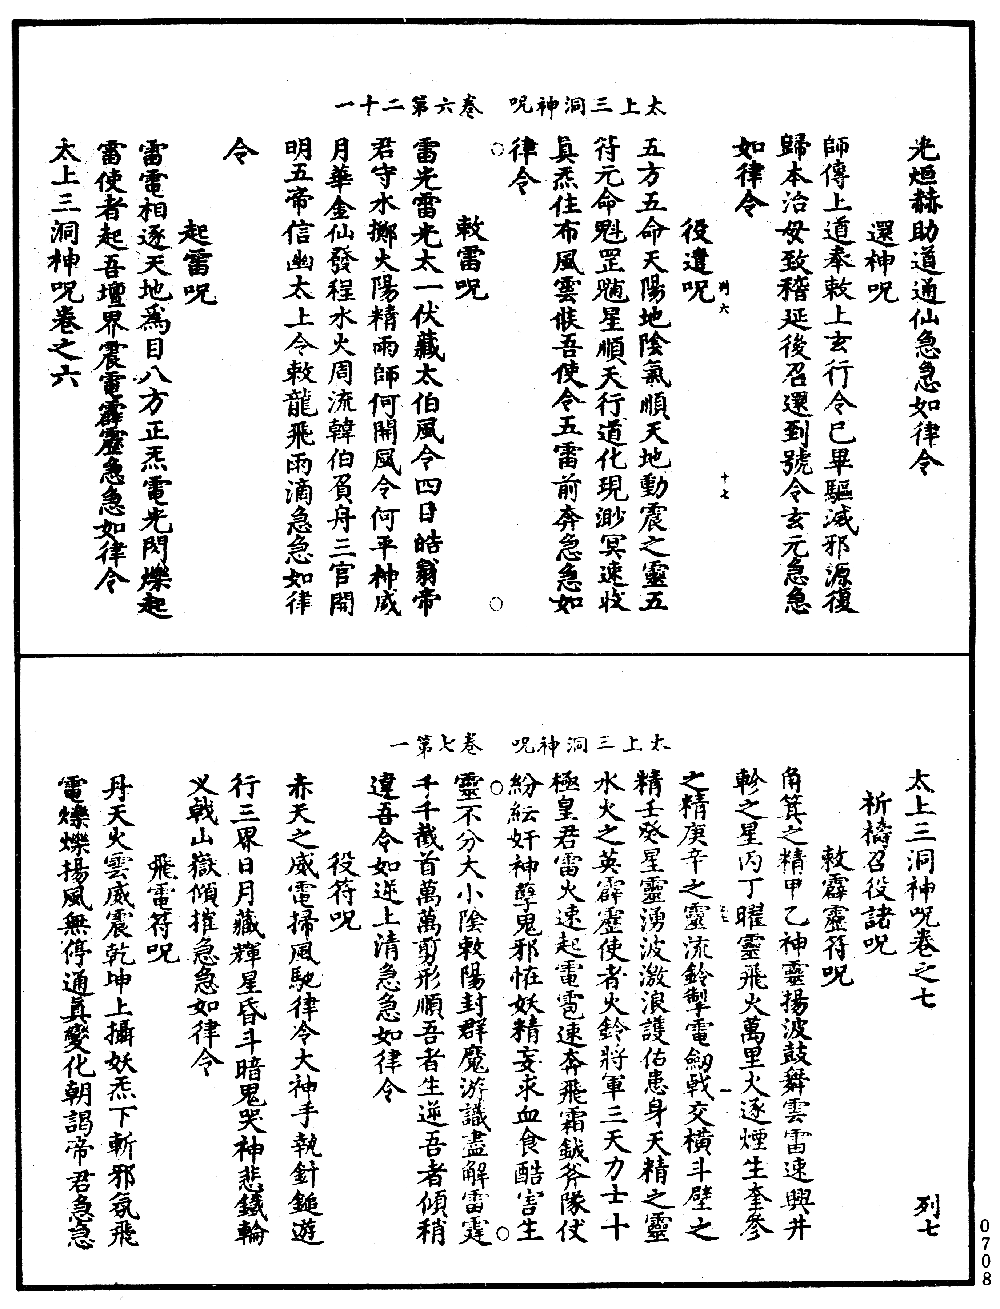 太上三洞神呪　卷六第二十一
光烜赫助道通仙急急如律令
還神呪
師傳上道奉敕上玄行令已畢驅滅邪源復
歸本治毋致稽延後召還到號令玄元急急
如律令
列六　十七
役遣呪
五方五命天陽地陰氣順天地動震之靈五
符元命魁罡魓星順天行道化現渺冥速收
真炁住布風雲候吾使令五雷前奔急急如
律令
敕雷呪
雷光雷光太一伏藏太伯風令四日皓翁帝
君守水擲火陽精雨師何開風令何平神威
月華金仙發程水火周流韓伯負舟三官開
明五帝信幽太上令敕龍飛雨滴急急如律
令
起雷呪
雷電相逐天地為目八方正炁電光閃爍起
雷使者起吾壇界震電霹靂急急如律令
太上三洞神呪卷之六
太上三洞神呪　卷七第一
太上三洞神呪卷之七　列七
祈禱召役諸呪
敕霹靂符呪
角箕之精甲乙神靈揚波鼓舞雲雷速興井
軫之星丙丁曜靈飛火萬里火逐煙生奎參
之精庚辛之靈流鈴掣電劒戟交橫斗壁之
精壬癸星靈湧波激浪護佑患身天精之靈
水火之英霹靂使者火鈴將軍三天力士十
極皇君雷火速起電雹速奔飛霜鉞斧隊仗
紛紜奸神孽鬼邪怪妖精妄求血食酷害生
靈不分大小陰敕陽封群魔游識盡解雷霆
千千截首萬萬剪形順吾者生逆吾者傾稍
違吾令如逆上清急急如律令
役符呪
赤天之威電掃風馳律令大神手執針鎚遊
行三界日月藏輝星昏斗暗鬼哭神悲鐵輪
义戟山嶽傾摧急急如律令
飛電符呪
丹天火雲威震乾坤上攝妖炁下斬邪氛飛
電爍爍揚風無停通真變化朝謁帝君急急
0708